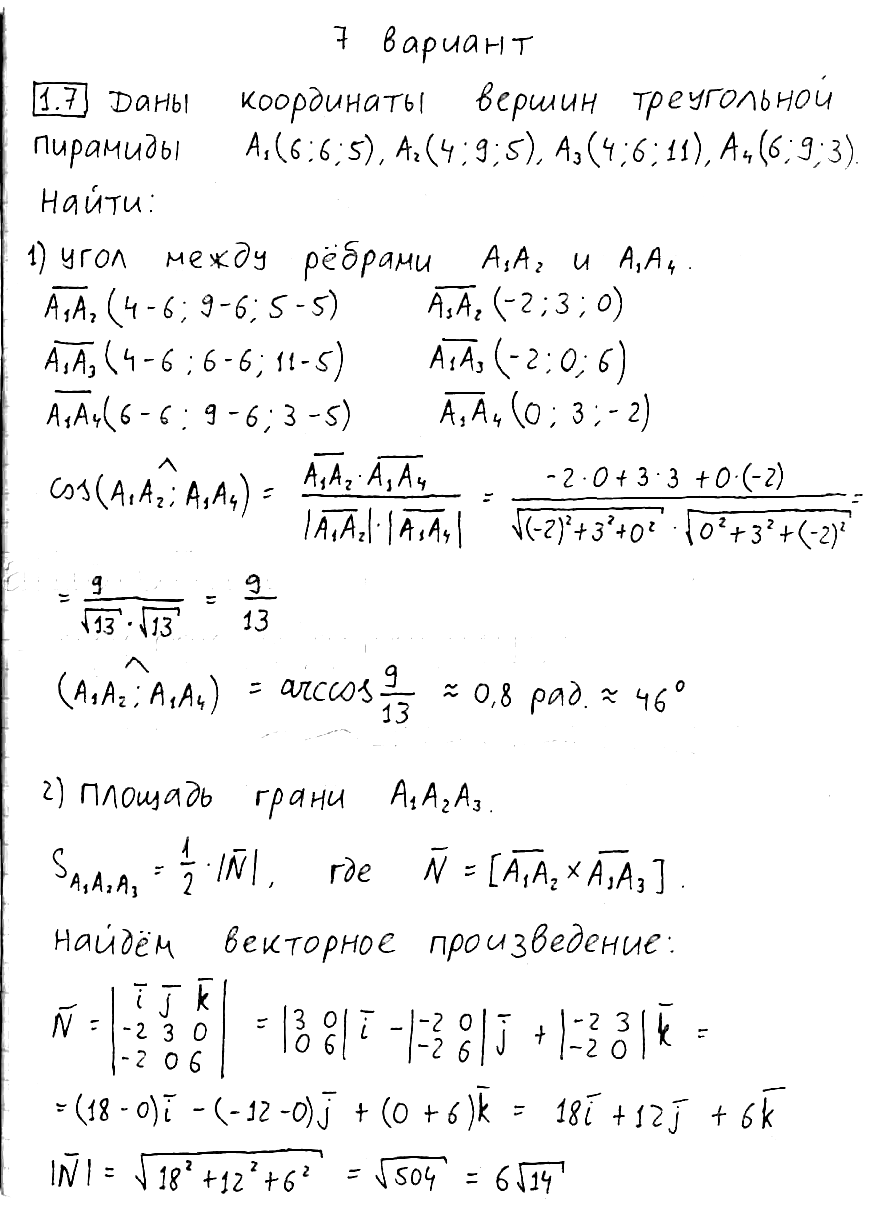 7 вариант
1.7 Даны координаты вершин треугольной
пирамиды A₁(6;6;5), A₂(4;9;5), A₃(4;6;11), A₄(6;9;3).
Найти:
1) угол между рёбрами A₁A₂ и A₁A₄.
A̅₁A̅₂(4-6; 9-6; 5-5) A̅₁A̅₂(-2;3;0)
A̅₁A̅₃(4-6;6-6;11-5) A̅₁A̅₃(-2;0;6)
A̅₁A̅₄(6-6; 9-6;3-5) A̅₁A̅₄(0;3;-2)
cos(A₁A₂^;A₁A₄) = (A̅₁A̅₂·A̅₁A̅₄)/(|A̅₁A̅₂|·|A̅₁A̅₄|) = (-2·0+3·3+0·(-2))/(√((-2)²+3²+0²)·√(0²+3²+(-2)²)) =
= 9/(√13·√13) = 9/13
(A₁A₂^;A₁A₄) = arccos 9/13 ≈ 0,8 рад. ≈ 46°
2) Площадь грани A₁A₂A₃.
S_A₁A₂A₃ = 1/2·|N̅|, где N̅ = [A̅₁A̅₂×A̅₁A̅₃].
Найдём векторное произведение:
N̅ = |i̅ j̅ k̅; -2 3 0; -2 0 6| = |3 0; 0 6| i̅ - |-2 0; -2 6| j̅ + |-2 3; -2 0| k̅ =
=(18-0)i̅ -(-12-0)j̅ + (0+6)k̅ = 18i̅ +12j̅ + 6k̅
|N̅| = √(18²+12²+6²) = √504 = 6√14